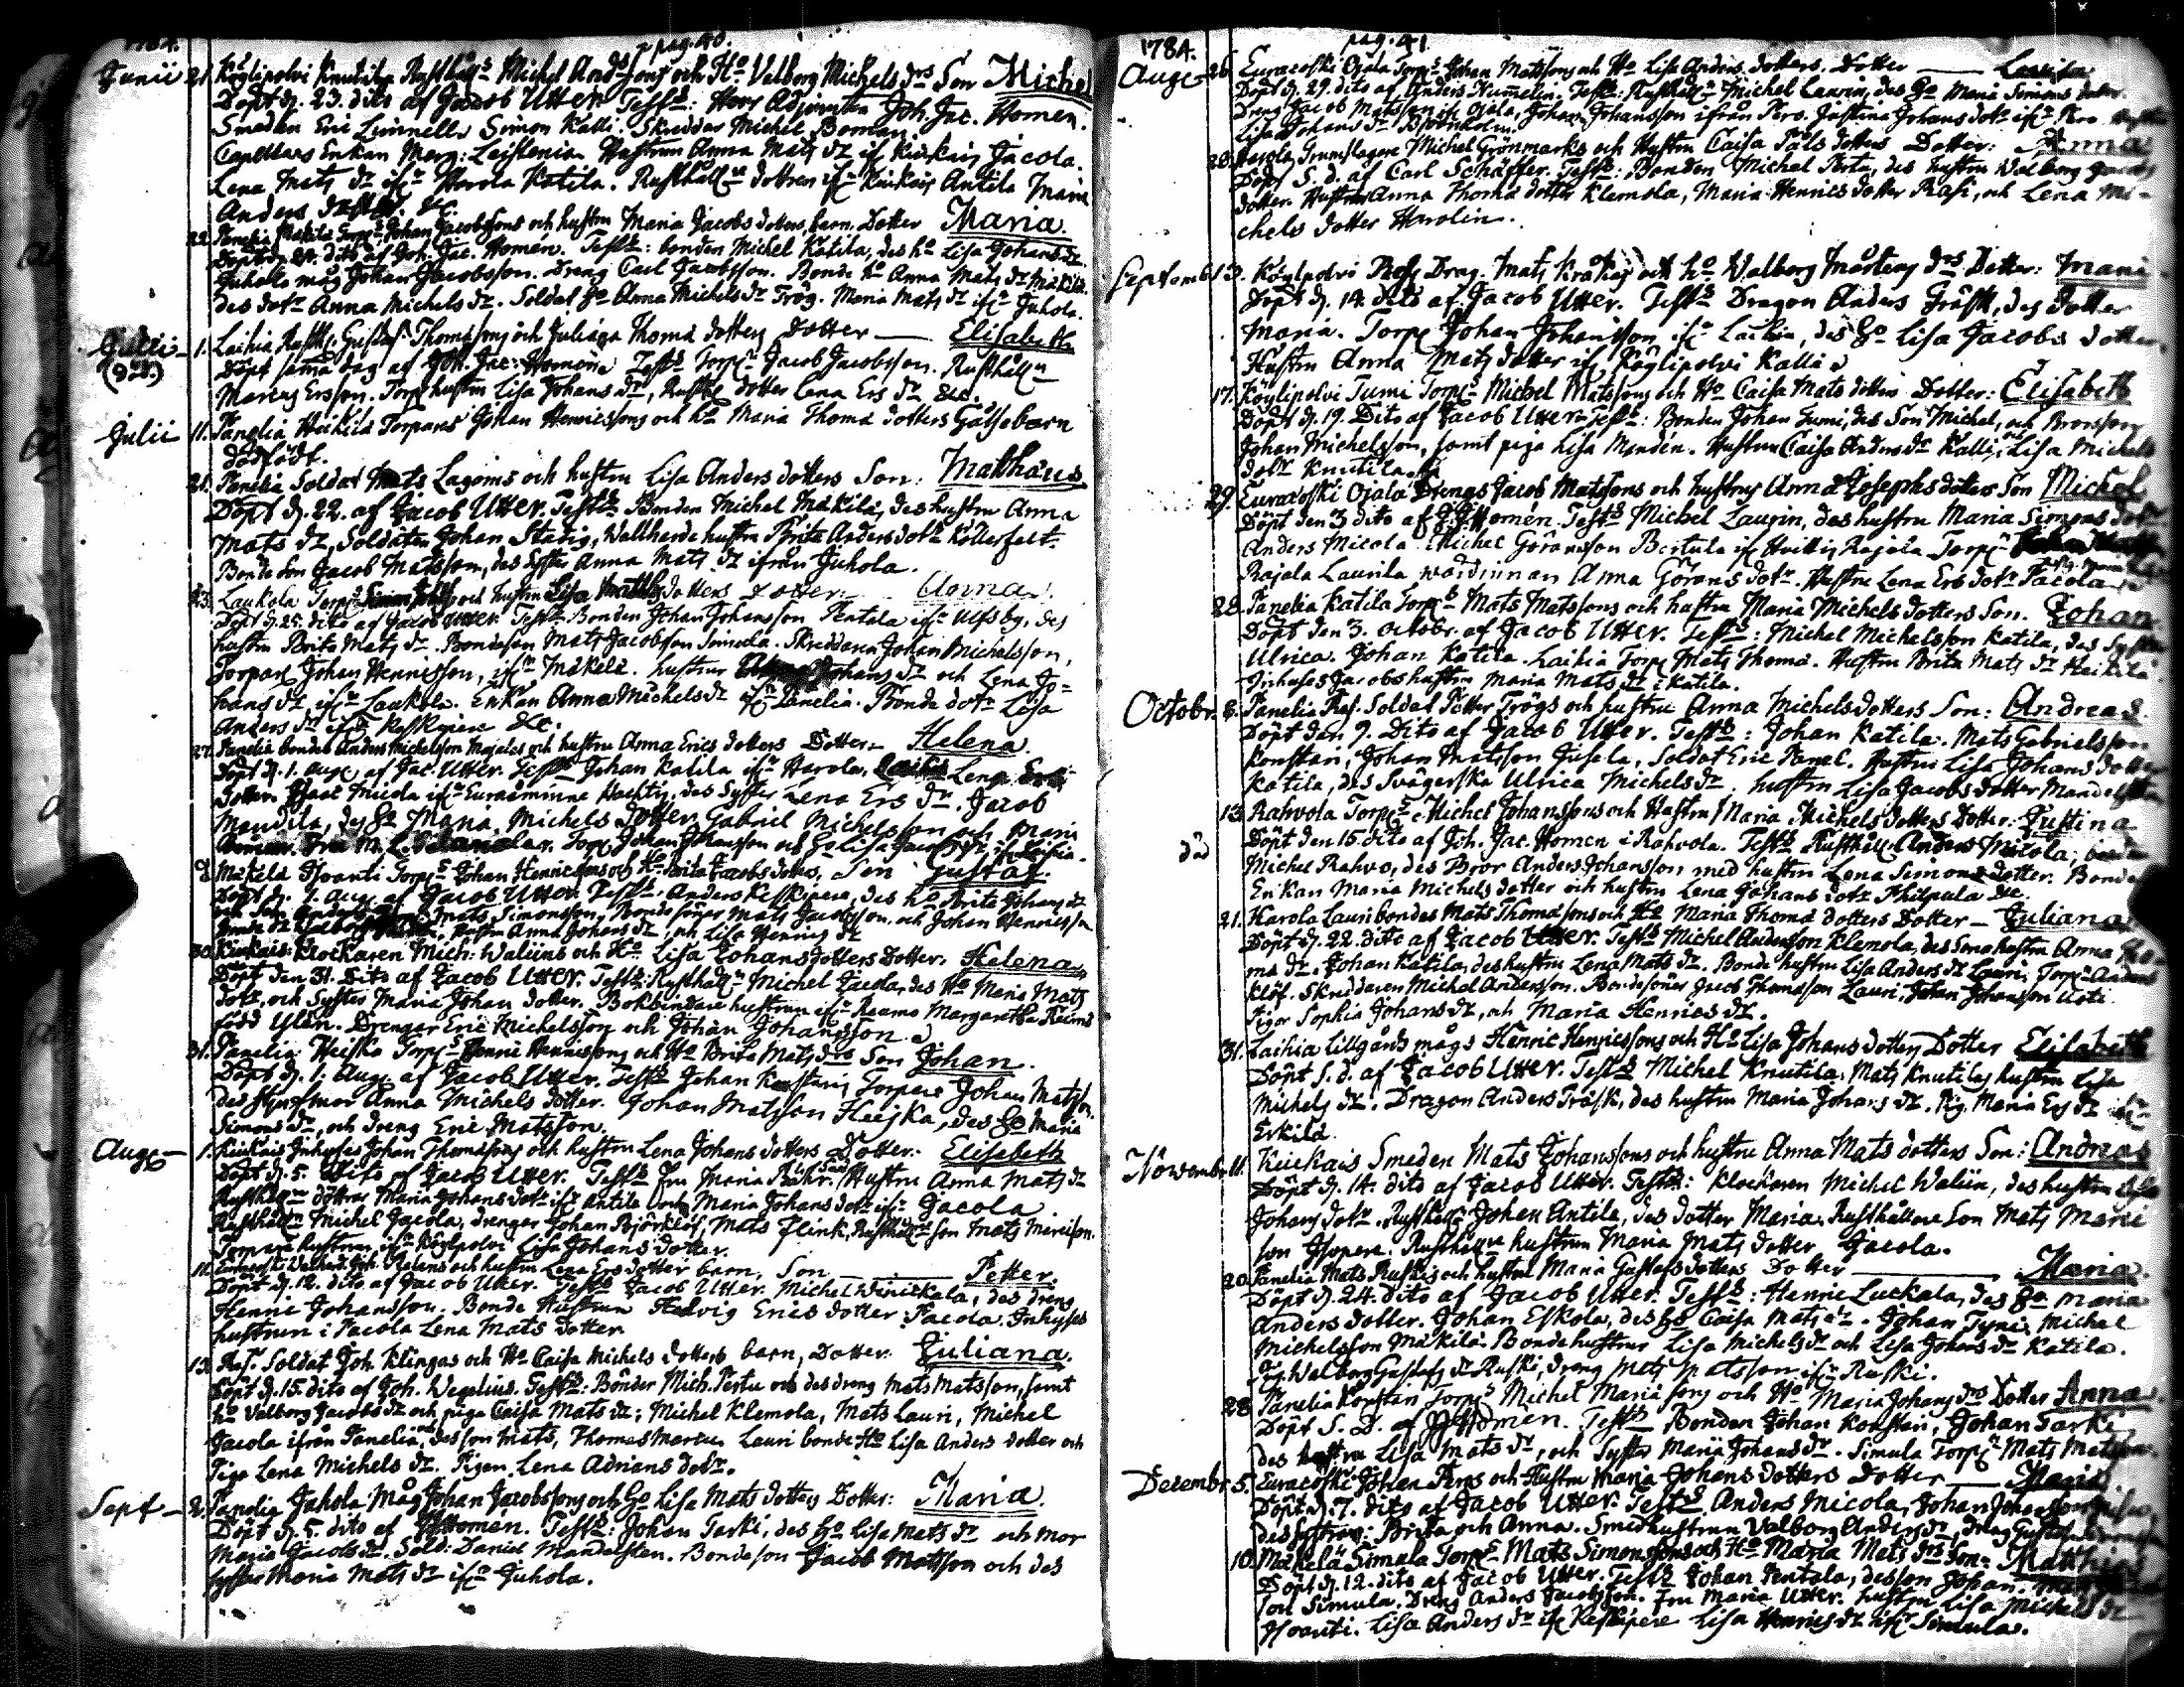 1784. pag. 40.
Junii 21. Köylipolvi Knutila Rusth. Michel And. Sons och H:o Valborg Michels drs Son Michel
Döpt d. 23. dito af Jacob Utter Test:s: Herr Adjuncten Joh. Jac. Homen.
Smeden Eric Simnelle Simon Kalli. Skreddar Michel Boman.
Capellans Enkan Marg: Leistenia Hustrun Anna Mats dr if:n Kiukais Jacola.
Lena Mats dr if:n Harola Katila. Rusthåll:s dottren if:n Kiukais Antila Maria
Anders dotter &c.
22. Panelia Mäkilä Torp:s Johan Jacobssons och hustru Maria Jacobs dotters barn. Dotter Maria.
Döpt d. dito af Joh. Jac. Homen. Test:s: bonden Michel Katila, des h:o Lisa Johans dr
Juhola måg Johan Jacobsson. Dreng Carl Jacobsson. Bonde h:o Anna Mats dr Mäkilä.
des dot:r Anna Michels dr. Soldat h:o Anna Michels dr Trög. Maria Mats dr if:n Juhola.
Julii 1. Laihia Rusth. Gustaf Thomassons och Juliana Thoma dotters Dotter — Elisabeth
Döpt samma dag af Joh. Jac: Homén Test:s Torp:n Jacob Jacobsson. Rusthåll:n
Marcus Ersson. Torp. hustrun Lisa Johans dr, Rusth. dotter Lena Ers dr &c.
Julii 11. Panelia Heikilä Torpares Johan Henricssons och h:o Maria Thoma dotters Gossebarn
dödfödt.
21. Panelia Soldat Mats Lagoms och hustru Lisa Anders dotters Son: Matthäus
Döpt d. 22. af Jacob Utter. Test:s Bonden Michel Mäkilä, des hustru Anna
Mats dr, Soldaten Johan Stadig, Wallherde hustru Brita Anders dotr Kollerfelt.
Bonde son Jacob Matsson, des Syster Anna Mats dr ifrån Juhola.
23. Laukola Torp:s och hustru Lisa dotters Dotter — Anna.
Döpt d. 25. dito af Jacob Utter. Test:s Bonden Johan Johansson Pentala if:n Ulfsby, des
hustru Brita Mats dr. Bondeson Mats Jacobsson Simula. Skreddaren Johan Michelsson,
Torparen Johan Hennisson, if:n Mäkelä. hustrur Johans dr och Lena Jo=
hans dr if:n Laukola. Enkan Anna Michels dr if:n Panelia. Bonde dotr Lisa
Anders dr if:n Keskipere &c.
27. Panelia bonde Anders Michelsson Majales och hustru Anna Erics dotters Dotter — Helena.
Döpt d. 1. Aug. af Jac. Utter. Test:s Johan Katila if:n Harola, Lena Ers
dotter. Isac Micola if:n Euraåminne des Syster Lena Ers dr. Jacob
Mandila, des h:o Maria Michels dotter. Gabriel Michelsson och Maria
Torp. Johan Johansson och h:o Lisa Jacobs dr if:n Laihia.
Mäkelä Isvanti Torp:s Johan Henricssons och H:o Brita Jacobs dotters, Son Gustaf.
Döpt d. 1. aug. af Jacob Utter. Test:s. Anders Keskipere, des h:o Brita Johans dr
Mats Simonsson, Bonde söner Mats Jacobsson. och Johan Henricsson
hustru Anna Johans dr, och Lisa Hennics dr
30. Kiukais Klockaren Mich: Waliins och H:o Lisa Johans dotters Dotter. Helena
Döpt den 31. dito af Jacob Utter. Test:s: Rusthåll:n Michel Jacola, des H:o Maria Mats
dotr, och Syster Maria Johan dotter. Bokbindare hustrun if:n Raumo Margaretha Reims
född Ulén. Drengar Eric Michelsson och Johan Johansson.
31. Panelia Heiska Torp:s Henric Henricssons och H:o Brita Mats drs Son Johan.
Döpt d. 1. Aug. af Jacob Utter. Test:s Johan Konstari Torpare Johan Matsson
des Hustrus mor Anna Michels dotter. Johan Matsson Heiska, des h:o Maria
Simons dr, och dreng Eric Matsson.
Aug: — 1. Kiukais Inhyses Johan Thomassons och hustru Lena Johans dotters Dotter. Elisabeth
Döpt d. 5. dito af Jacob Utter. Test:s Fru Maria Hustru Anna Mats dr
Rusth dottrar Maria Johans dotr if:n Antila och Maria Johans dotr if:n Jacola
Rusthåll:n Michel Jacola, drengar Johan Björklöf, Mats Flink, Rusthåll son Mats Maresson.
Torpare hustrun if:n Köylpolvi Lisa Johans dotter.
10. Joh. Relins och hustru Lena Ers dotter barn, Son — Petter.
Döpt d. 12. dito af Jacob Utter. Test:s Jacob Utter. Michel Winickala, des dreng
Henric Johansson. Bonde Hustrun Hedvig Erics dotter Pacola. Inhyses
hustrun i Pacola Lena Mats dotter
13. Ref. Soldat Joh. Klingas och H:o Caisa Michels dotters barn, Dotter: Juliana.
Döpt d. 15. dito af Joh. Wegelius. Test:s: Bönder Mich. Pertu och des dreng Mats Matsson, samt
h:o Valborg Jacobs dr och piga Caisa Mats dr; Michel Klemola, Mats Lauri, Michel
Jacola ifrån Panelia, des son Mats, Thomas Marcu, Lauri bonde H:o Lisa Anders dotter och
Piga Lena Michels dr. Pigen Lena Adrians dotr.
Sept — 2. Panelia Juhola Måg Johan Jacobssons och h:o Lisa Mats dotters Dotter: Maria.
Döpt d. 5. dito af JJHomén. Test:s: Johan Tarki, des h:o Lisa Mats dr och mor
Maria Jacobs dr. Sold. Daniel Mandelsten. Bondeson Jacob Matsson och des
syster Maria Mats dr if:n Juhola.
1784. pag. 41.
Aug: — 26. Euracoski Ojala Torp:s Johan Matssons och H:o Lisa Anders dotters. Dotter — Lovisa
Döpt d. 29. dito af Anders Numelin. Test:s: Rusthåll:n Michel Laurin, des h:o Maria Simons dotter.
Dreng Jacob Matsson if:n Ojala, Johan Johansson ifrån Pero. Justina Johans dotr if:n Pero
Lisa Johans dr Björnholm.
28. Harola Grenuslagare Michel Grönmarks och Hustru Caisa Påls dotters Dotter: Anna
Döpt S. d. af Carl Schäffer. Test:s: Bonden Michel Pertu, des hustru Valborg Jacobs
dotter. Hustrun Anna Thoma dotter Klemola, Maria Henrics dotter Rasi, och Lena Mi-
chels dotter Harolin.
Septemb: 13. Köylpolvi Ref. Drag. Mats Kråkas och h:o Walborg Mårtens drs Dotter: Maria
Döpt d. 14. dito af Jacob Utter. Test:s Dragon Anders Träsk, des dotter
Maria. Torp. Johan Johansson if:n Laihia, des h:o Lisa Jacobs dotter,
Hustru Anna Mats dotter if:n Köylipolvi Kallia
17. Köylipolvi Tumi Torp:s Michel Matssons och H:o Caisa Mats dotters Dotter: Elisabeth
Döpt d. 19. Dito af Jacob Utter Test:s: Bonden Johan Tumi, des Son Michel, och Brorson
Johan Michelsson, samt piga Lisa Mandin. Hustrun Caisa Anders dr Kalli, Lisa Michels
dotr Knutila.
29. Euracoski Ojala Drengs Jacob Matssons och hustrus Anna Josephs dotters Son Michel
Döpt den 3 dito af J.J.Homén. Test:s Michel Laurin, des hustru Maria Simons dotr
Anders Micola. Michel Göransson Bertula if:n Huittis Rajala Torp:n
Rajala Laurila värdinnan Anna Görans dotr. Hustru Lena Ers dotr Pacola
28. Panelia Katila Torp:s Mats Matssons och hustru Maria Michels dotters Son. Johan
Döpt den 3. octobr. af Jacob Utter. Test:s: Michel Michelsson Katila, des Syster
Ulrica. Johan Katila. Laihia Torp. Mats Thoma. Hustru Brita Mats dr Heikilä
Inhuses Jacobs hustru Maria Mats dr i Katila.
Octobr. 8. Panelia Ref. Soldat Petter Trögs och hustru Anna Michels dotters Son: Andreas
Döpt den 9. Dito af Jacob Utter. Test:s: Johan Katila. Mats Gabrielsson
Konstari, Johan Matsson Jusela, Soldat Eric Panel. Hustru Lisa Johans dotter
Katila, des Svägerska Ulrica Michels dr. hustru Lisa Jacobs dotter Mandelsten
13. Rahvola Torp:s Michel Johanssons och Hustru Maria Michels dotters Dotter: Justina
död Döpt den 15. dito af Joh. Jac. Homen i Rahvola. Test:s Rusthåll. Anders Micola, bonden
Michel Rahvo, des Bror Anders Johansson med hustru Lena Simons dotter. Bonde
Enkan Maria Michels dotter och hustru Lena Johans dotr Philpula &c.
21. Harola Lauri bondes Mats Thomassons och H:o Maria Thoma dotters Dotter — Juliana
Döpt d. 22. dito af Jacob Utter. Test:s Michel Andersson Klemola, des Sonahustru Anna Tho-
ma dr. Johan Katila, des hustru Lena Mats dr. Bonde hustru Lisa Anders dr Lauri, Torp:n Anders
Klöf. Skreddaren Michel Andersson. Bondesöner Jacob Thomasson Lauri, Johan Johansson Uoti.
Pigor Sophia Johans dr, och Maria Henrics dr.
31. Laihia Lillgårds mågs Henric Henricssons och H:o Lisa Johans dotters Dotter Elisabeth
Döpt S. d. af Jacob Utter. Test:s Michel Knutila. Mats Knutilas hustru Lisa
Michels dr. Dragon Anders Träsk, des hustru Maria Johans dr. Pig. Maria Ers dr if:n
Eskilä.
Novembr 11. Kiukais Smeden Mats Johanssons och hustru Anna Mats dotters Son: Andreas
Döpt d. 14. dito af Jacob Utter. Test:s: Klockaren Michel Waliin, des hustru Lisa
Johans dotr. Rusthåll:n Johan Antila, des dotter Maria. Rusthållare Son Mats Mares
son Isopere. Rusthåll:re hustrun Maria Mats dotter Jacola.
20. Panelia Mats Ruskis och hustru Maria Gustafs dotters Dotter — Maria.
Döpt d. 24. dito af Jacob Utter. Test:s: Henric Luckala, des h:o Maria
Anders dotter. Johan Eskola, des h:o Caisa Mats dr. Johan Tyni, Michel
Michelsson Mäkilä. Bondehustrur Lisa Michels dr och Lisa Johans dr Katila.
Pig. Walborg Gustafs dr Ruski, dreng Mats Matsson if:n Ruski.
28. Panelia Konstari Torp:s Michel Mariasons och H:o Maria Johans drs Dotter Anna.
Döpt S. D. af JJHomen. Test:s Bonden Johan Konstari, Johan Tarki
des hustru Lisa Mats dr, och Syster Maria Johans dr. Simula Torp:n Mats Matsson.
Decembr. 5. Euracoski Johan Peros och Hustru Maria Johans dotters Dotter — Maria
Döpt d. 7. dito af Jacob Utter. Test:s Anders Micola, Johan Johansson
des Systrar: Brita och Anna. Smedhustrun Valborg Anders dr, dreng Gustaf
10. Mäkelä Simula Torp:s Mats Simonssons och H:o Maria Mats drs Son — Matthias
Döpt d. 12. dito af Jacob Utter. Test:s Johan Pentala, des son Johan.
son Simula. Dreng Anders Jacobsson. Fru Maria Utter. hustru Lisa Michels dr
Isvanti. Lisa Anders dr if:n Keskipere Lisa Henrics dr if:n Simula.